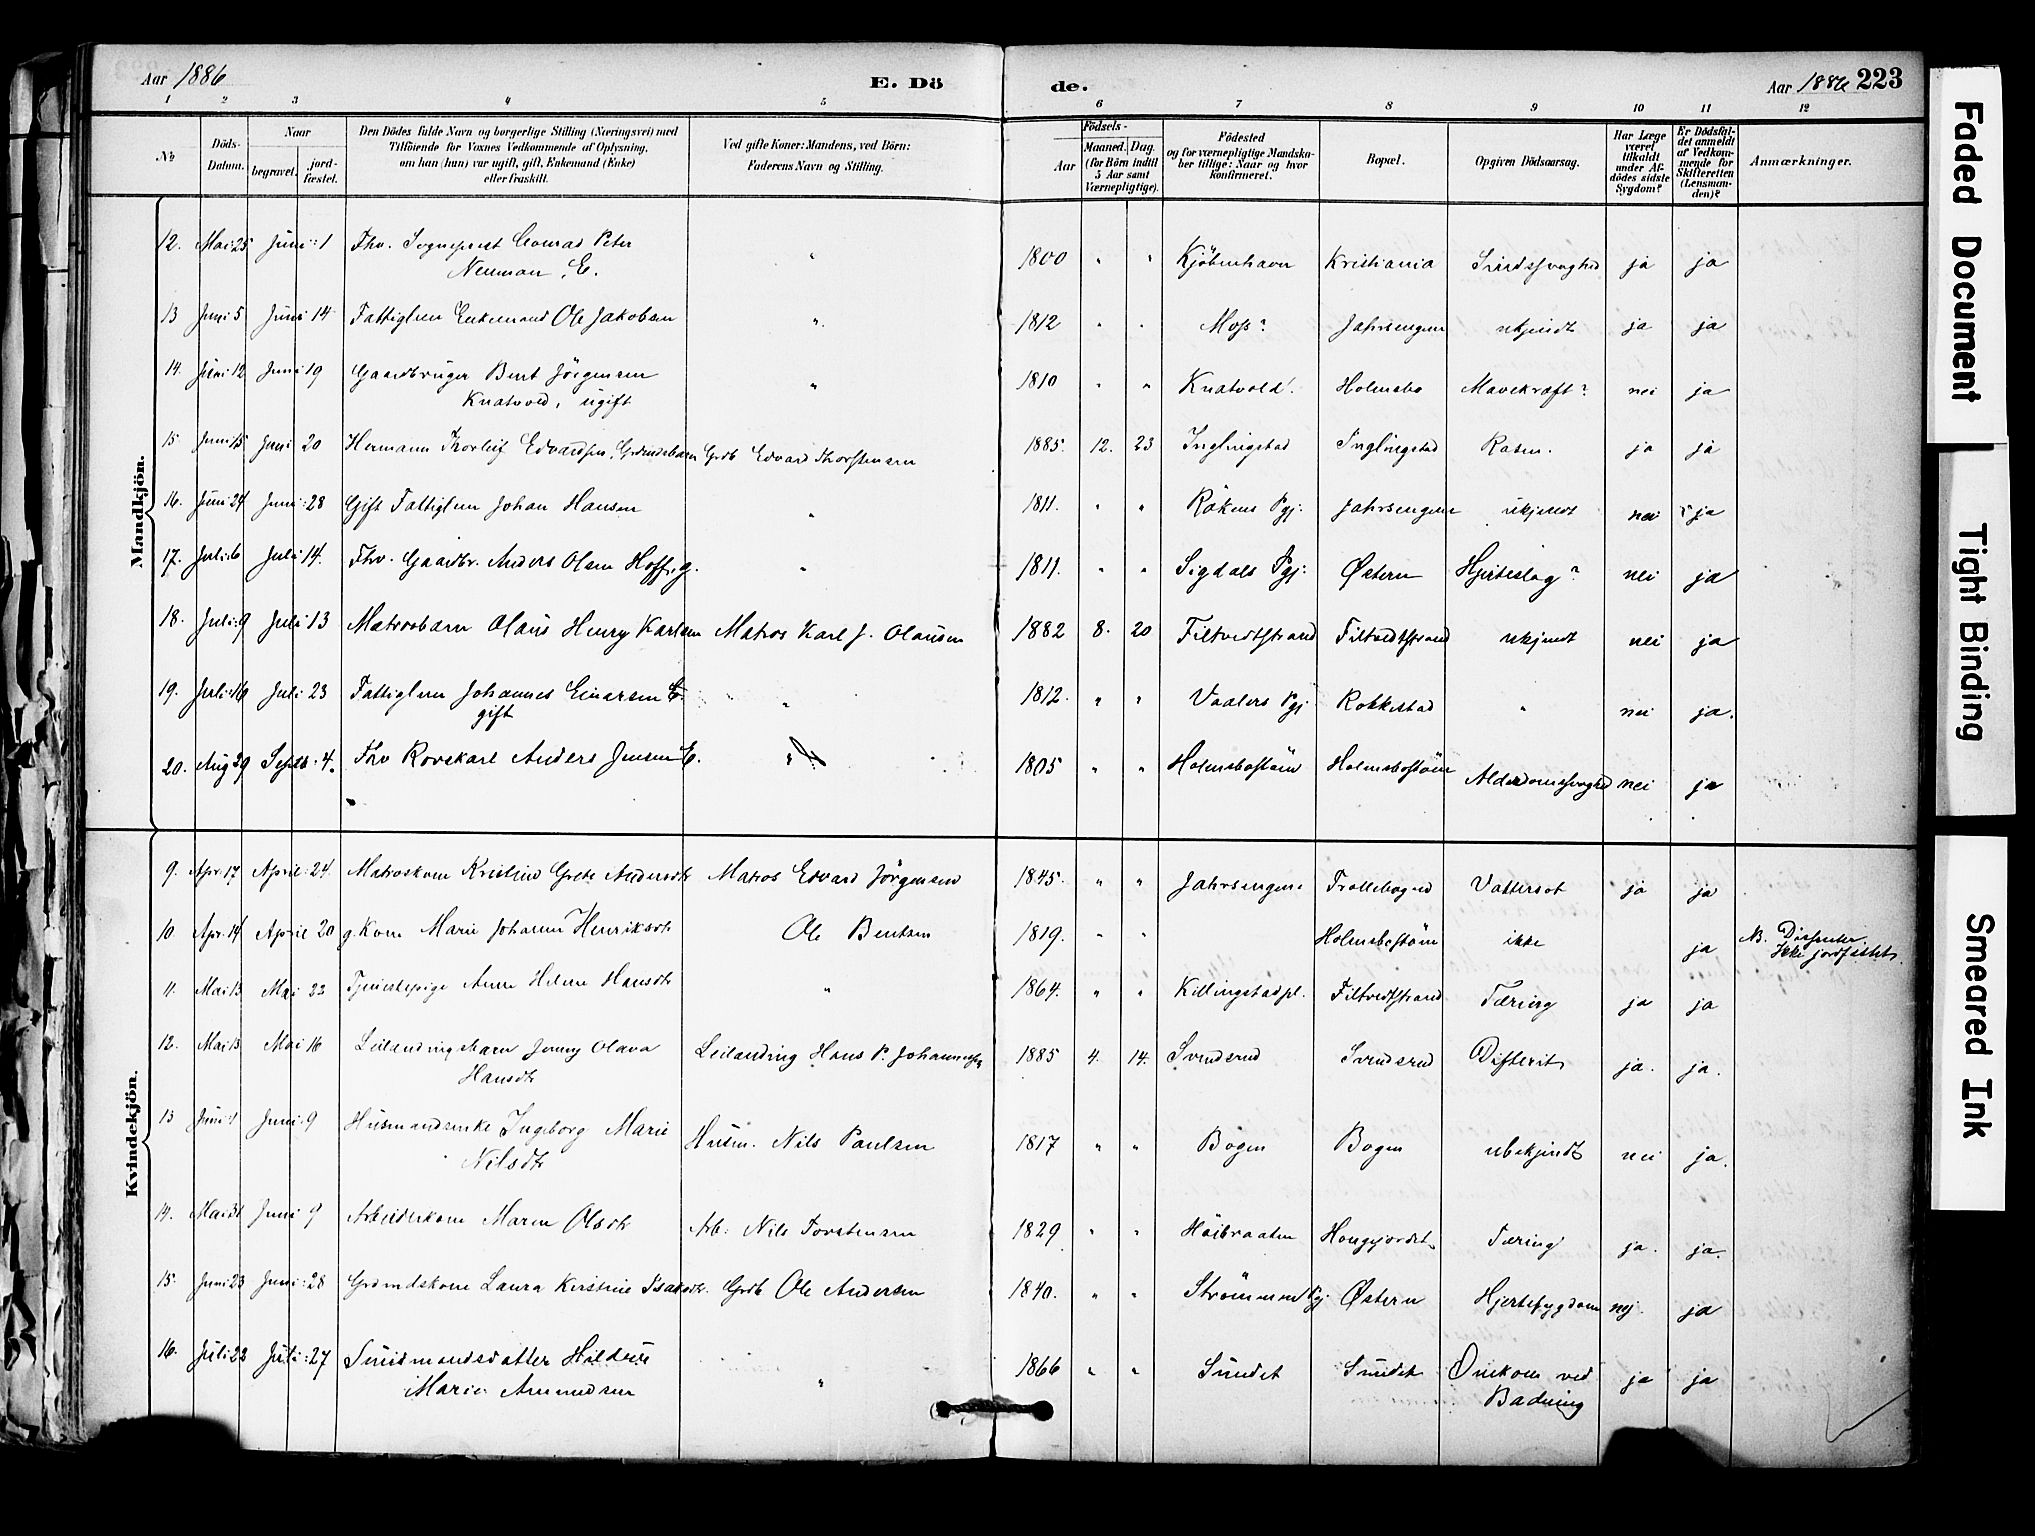 Aar 1886 E. Dö de. Aar 1886 223
1 2 3 4 5 6 7 8 9 10 11 12
№ Döds-Datum. Naar begravet. jord-fæstet. Den Dödes fulde Navn og borgerlige Stilling (Næringsvei) med Tilföiende for Voxnes Vedkommende af Oplysning, om han (hun) var ugift, gift, Enkemand (Enke) eller fraskilt. Ved gifte Koner: Mandens, ved Börn: Faderens Navn og Stilling. Födsels- Aar Maaned. Dag. (for Börn indtil 5 Aar samt Værnepligtige). Födested og for værnepligtige Mandskaber tillige: Naar og hvor konfirmeret. Bopæl. Opgiven Dödsaarsag. Har Læge været tilkaldt under Afdödes sidste Sygdom? Er Dödsfaldet anmeldt af Vedkommende for Skifteretten (Lensmanden)? Anmærkninger.
Mandkjön.
12. Mai 25 Juni 1 Fhv. Sogneprest Conrad Peter Neuman, E. " 1800 " " Kjöbenhavn Kristiania Sindssvaghed ja ja
13 Juni 5 Juni 14 Fattiglem Enkemand Ole Jakobsen " 1812 " " Moss? Jahrsengen ukjendt ja ja
14. Juni 12 Juni 19 Gaardbruger Bent Jörgensen Knatvold, ugift " 1810 " " Knatvold. Holmsbo Mavekræft? nei ja
15 Juni 15 Juni 20 Hermann Thorleif Edvardsen, Grdmdsbarn Grdb Edvard Thorstensen 1885. 12. 23 Inglingstad Inglingstad Rosen. ja ja
16. Juni 24 Juni 28 Gift Fattiglem Johan Hansen " 1811. " " Rökens Pgj. Jahrsengen ukjendt nei ja
17. Juli 6 Juli 14. Fhv. Gaardbr. Anders Olsen Hoff, g. " 1811. " " Sigdals Pgj. Østern Hjerteslag? nei ja
18. Juli 9 Juli 13 Matrosbarn Olaus Henry Karlsen Matros Karl J. Olausen 1882 8. 20 Filtvedtstrand Filtvedtstrand ukjendt nei ja
19. Juli 16 Juli 23 Fattiglem Johannes Einarsen gift " 1812. " " Vaalers Pgj Rokkestad " nei ja.
20. Aug 29 Septb. 4. Fhv Rorskarl Anders Jensen E. " 1805 " " Holmsbostöen Holmsbostöen Alderdomssvaghed nei ja
Kvindekjön.
9. Apr. 17 April 24. Matroskone Kristine Grete Andersdtr Matros Edvard Jörgensen 1845. " " Jahrsengen Trollebogen Vattersot ja ja
10. Apr. 14 April 20 g. Kone Marie Johanne Henriksdtr Ole Bentsen 1819. " " Holmsbostöen ikke ja NB. Dissenter Ikke jordfæstet.
11. Mai 13 Mai 23 Tjenestepige Anne Helene Hansdtr " 1864. " " Killingstadpl. Filtvedtstrand Tæring ja ja
12. Mai 13 Mai 16 Leilændingsbarn Jenny Olava Hansdtr Leilænding Hans P. Johannessen 1885 4. 14. Svendsrud Svendsrud Difterit ja. ja.
13 Juni 1 Juni 9 Husmandsenke Ingeborg Marie Nilsdtr Husm. Nils Paulsen 1817 " " Bogen Bogen ubekjendt nei ja.
14. Mai 31 Juni 9 Arbeiderkone Maren Olsdtr Arb. Nils Torstensen 1829 " " Höibraaten Haugjordet Tæring ja. ja.
15. Juni 23 Juni 28 Grdmdskone Laura Kirstine Isaksdtr. Grdb Ole Andersen 1840. " " Strömmens Pgj Østern Hjertesygdom nej. ja
16. Juli 22 Juli 27 Smedmandsdatter Hildine Marie Amundsen " 1866 " " Sundet Sundet Omkom ved Badning ja ja
Faded Document
Tight Binding
Smeared Ink